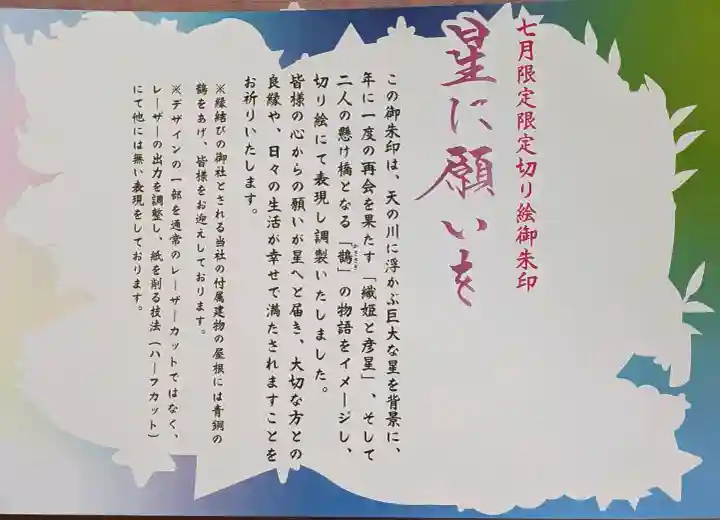 七月限定限定切り絵御朱印
星に願いを
この御朱印は、天の川に浮かぶ巨大な星を背景に、
年に一度の再会を果たす「織姫と彦星」、そして
二人の懸け橋となる「鵲」の物語をイメージし、
かささぎ
切り絵にて表現し調製いたしました。
皆様の心からの願いが星へと届き、大切な方との
良縁や、日々の生活が幸せで満たされますことを
お祈りいたします。
※縁結びの御社とされる当社の付属建物の屋根には青銅の
鵲をあげ、皆様をお迎えしております。
※デザインの一部を通常のレーザーカットではなく、
レーザーの出力を調整し、紙を削る技法（ハーフカット）
にて他には無い表現をしております。